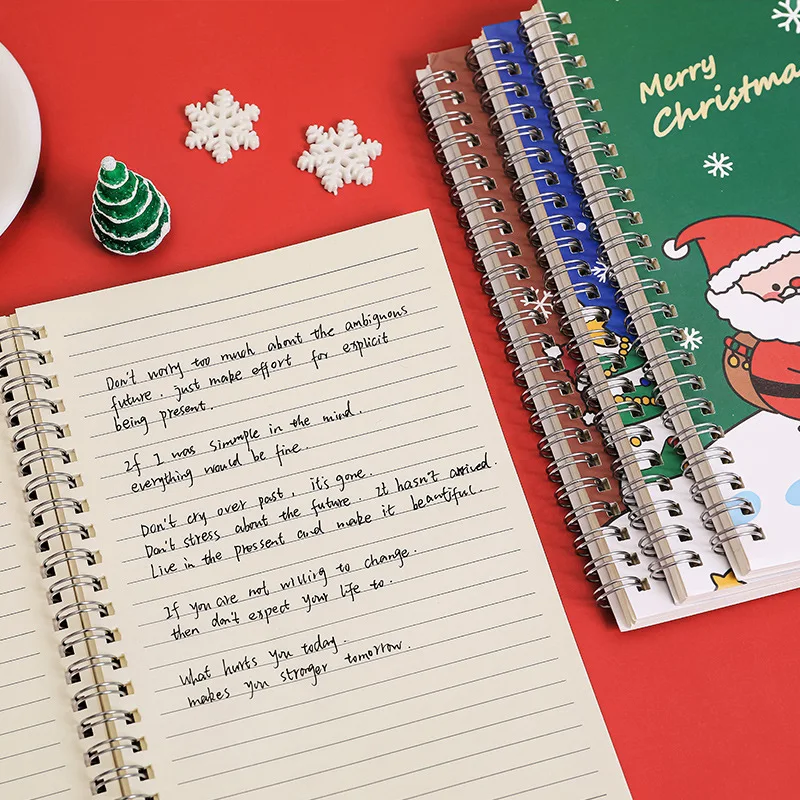 Don't worry too much about the ambiguous
future. just make effort for explicit
being present.
If I was simmple in the mind.
everything would be fine.
Don't cry over past, it's gone.
Don't stress about the future. It hasn't arrived.
Live in the pressent and make it beautiful.
If you are not willing to change.
then don't expect your life to.
What hurts you today.
makes you stronger tomorrow.
Merry
Christma